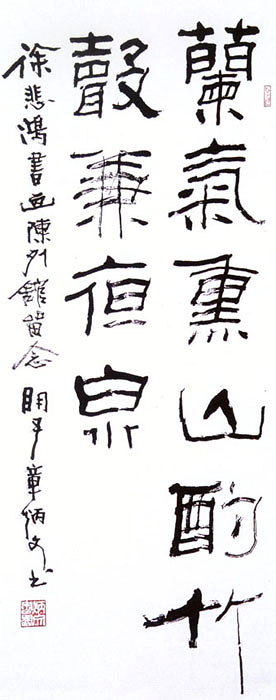 蘭氣熏山酌竹
聲兼亱泉
徐悲鴻書画陳列館留念 開平章炳文书